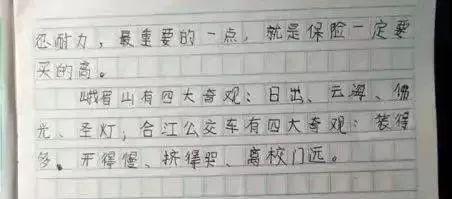 还耐力，最重要的一点，就是保险一定要
买的高。
峨眉山有四大奇观：日出、云海、佛
光、圣灯，合江公交车有四大奇观：装得
多、开得慢、挤得哭、离校门远。